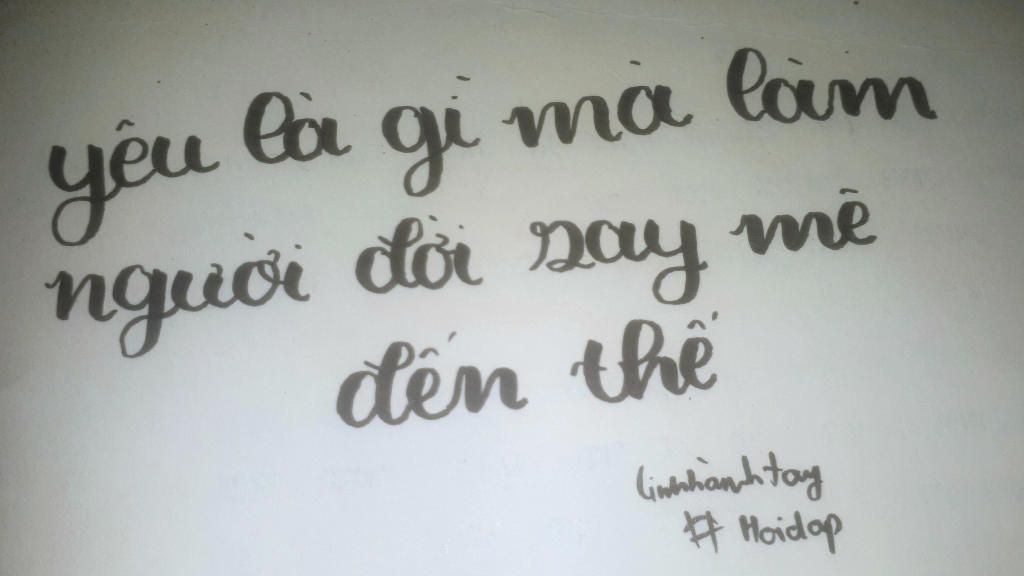 yêu là gì mà làm
người đời say mê
đến thế
linhhànhtay
# Hoidap